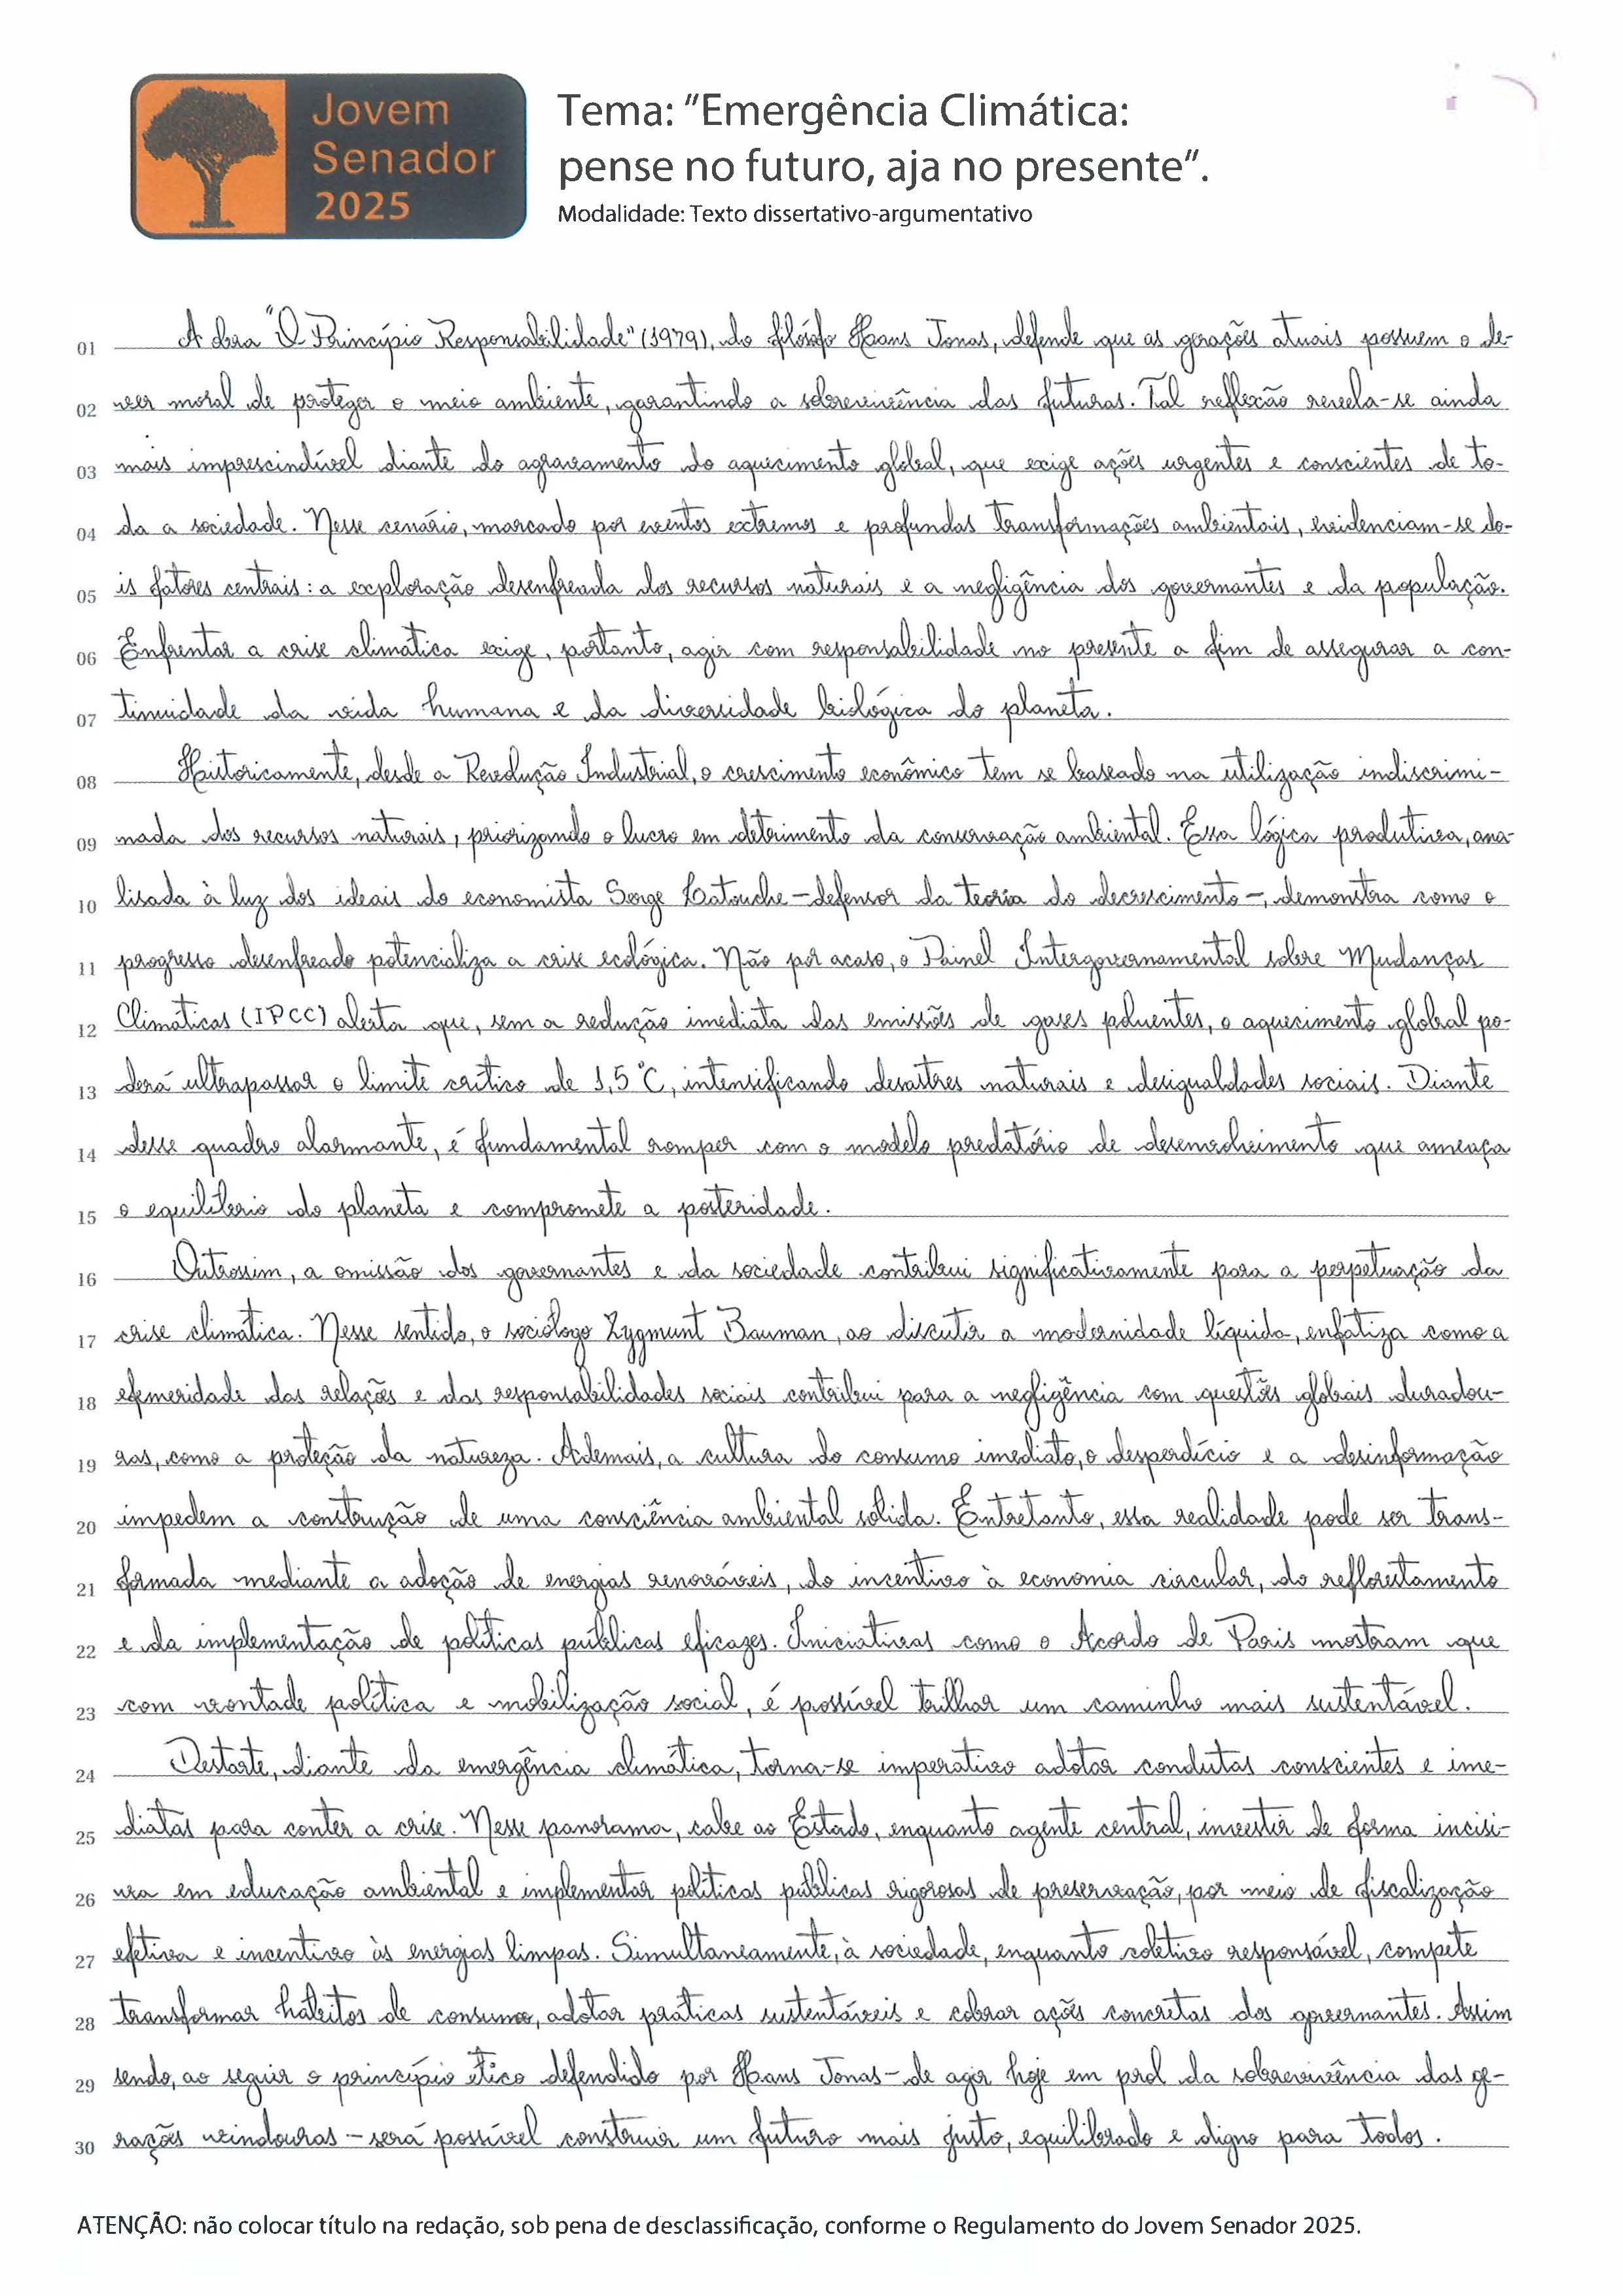 Jovem
Senador
2025
Tema: "Emergência Climática:
pense no futuro, aja no presente".
Modalidade: Texto dissertativo-argumentativo
01 A obra "O Princípio Responsabilidade" (1979), do filósofo Hans Jonas, defende que as gerações atuais possuem o de-
02 ver moral de proteger o meio ambiente, garantindo a sobrevivência das futuras. Tal reflexão revela-se ainda
03 mais imprescindível diante do agravamento do aquecimento global, que exige ações urgentes e conscientes de to-
04 da a sociedade. Nesse cenário, marcado por eventos extremos e profundas transformações ambientais, evidenciam-se do-
05 is fatores centrais: a exploração desenfreada dos recursos naturais e a negligência dos governantes e da população.
06 Enfrentar a crise climática exige, portanto, agir com responsabilidade no presente a fim de assegurar a con-
07 tinuidade da vida humana e da diversidade biológica do planeta.
08 Historicamente, desde a Revolução Industrial, o crescimento econômico tem se baseado na utilização indiscrimi-
09 nada dos recursos naturais, priorizando o lucro em detrimento da conservação ambiental. Essa lógica produtiva, ana-
10 lisada à luz dos ideais do economista Serge Latouche - defensor da teoria do decrescimento -, demonstra como o
11 progresso desenfreado potencializa a crise ecológica. Não por acaso, o Painel Intergovernamental sobre Mudanças
12 Climáticas (IPCC) alerta que, sem a redução imediata das emissões de gases poluentes, o aquecimento global po-
13 derá ultrapassar o limite crítico de 1,5 °C, intensificando desastres naturais e desigualdades sociais. Diante
14 desse quadro alarmante, é fundamental romper com o modelo predatório de desenvolvimento que ameaça
15 o equilíbrio do planeta e compromete a posteridade.
16 Outrossim, a omissão dos governantes e da sociedade contribui significativamente para a perpetuação da
17 crise climática. Nesse sentido, o sociólogo Zygmunt Bauman, ao discutir a modernidade líquida, enfatiza como a
18 efemeridade das relações e das responsabilidades sociais contribui para a negligência com questões globais duradou-
19 ras, como a proteção da natureza. Ademais, a cultura do consumo imediato, o desperdício e a desinformação
20 impedem a construção de uma consciência ambiental sólida. Entretanto, essa realidade pode ser trans-
21 formada mediante a adoção de energias renováveis, do incentivo à economia circular, do reflorestamento
22 e da implementação de políticas públicas eficazes. Iniciativas como o Acordo de Paris mostram que
23 com vontade política e mobilização social, é possível trilhar um caminho mais sustentável.
24 Destarte, diante da emergência climática, torna-se imperativo adotar condutas conscientes e ime-
25 diatas para conter a crise. Nesse panorama, cabe ao Estado, enquanto agente central, investir de forma incisi-
26 va em educação ambiental e implementar políticas públicas rigorosas de preservação, por meio de fiscalização
27 efetiva e incentivo às energias limpas. Simultaneamente, à sociedade, enquanto coletivo responsável, compete
28 transformar hábitos de consumo, adotar práticas sustentáveis e cobrar ações concretas dos governantes. Assim
29 sendo, ao seguir o princípio ético defendido por Hans Jonas - de agir hoje em prol da sobrevivência das ge-
30 rações vindouras - será possível construir um futuro mais justo, equilibrado e digno para todos.
ATENÇÃO: não colocar título na redação, sob pena de desclassificação, conforme o Regulamento do Jovem Senador 2025.